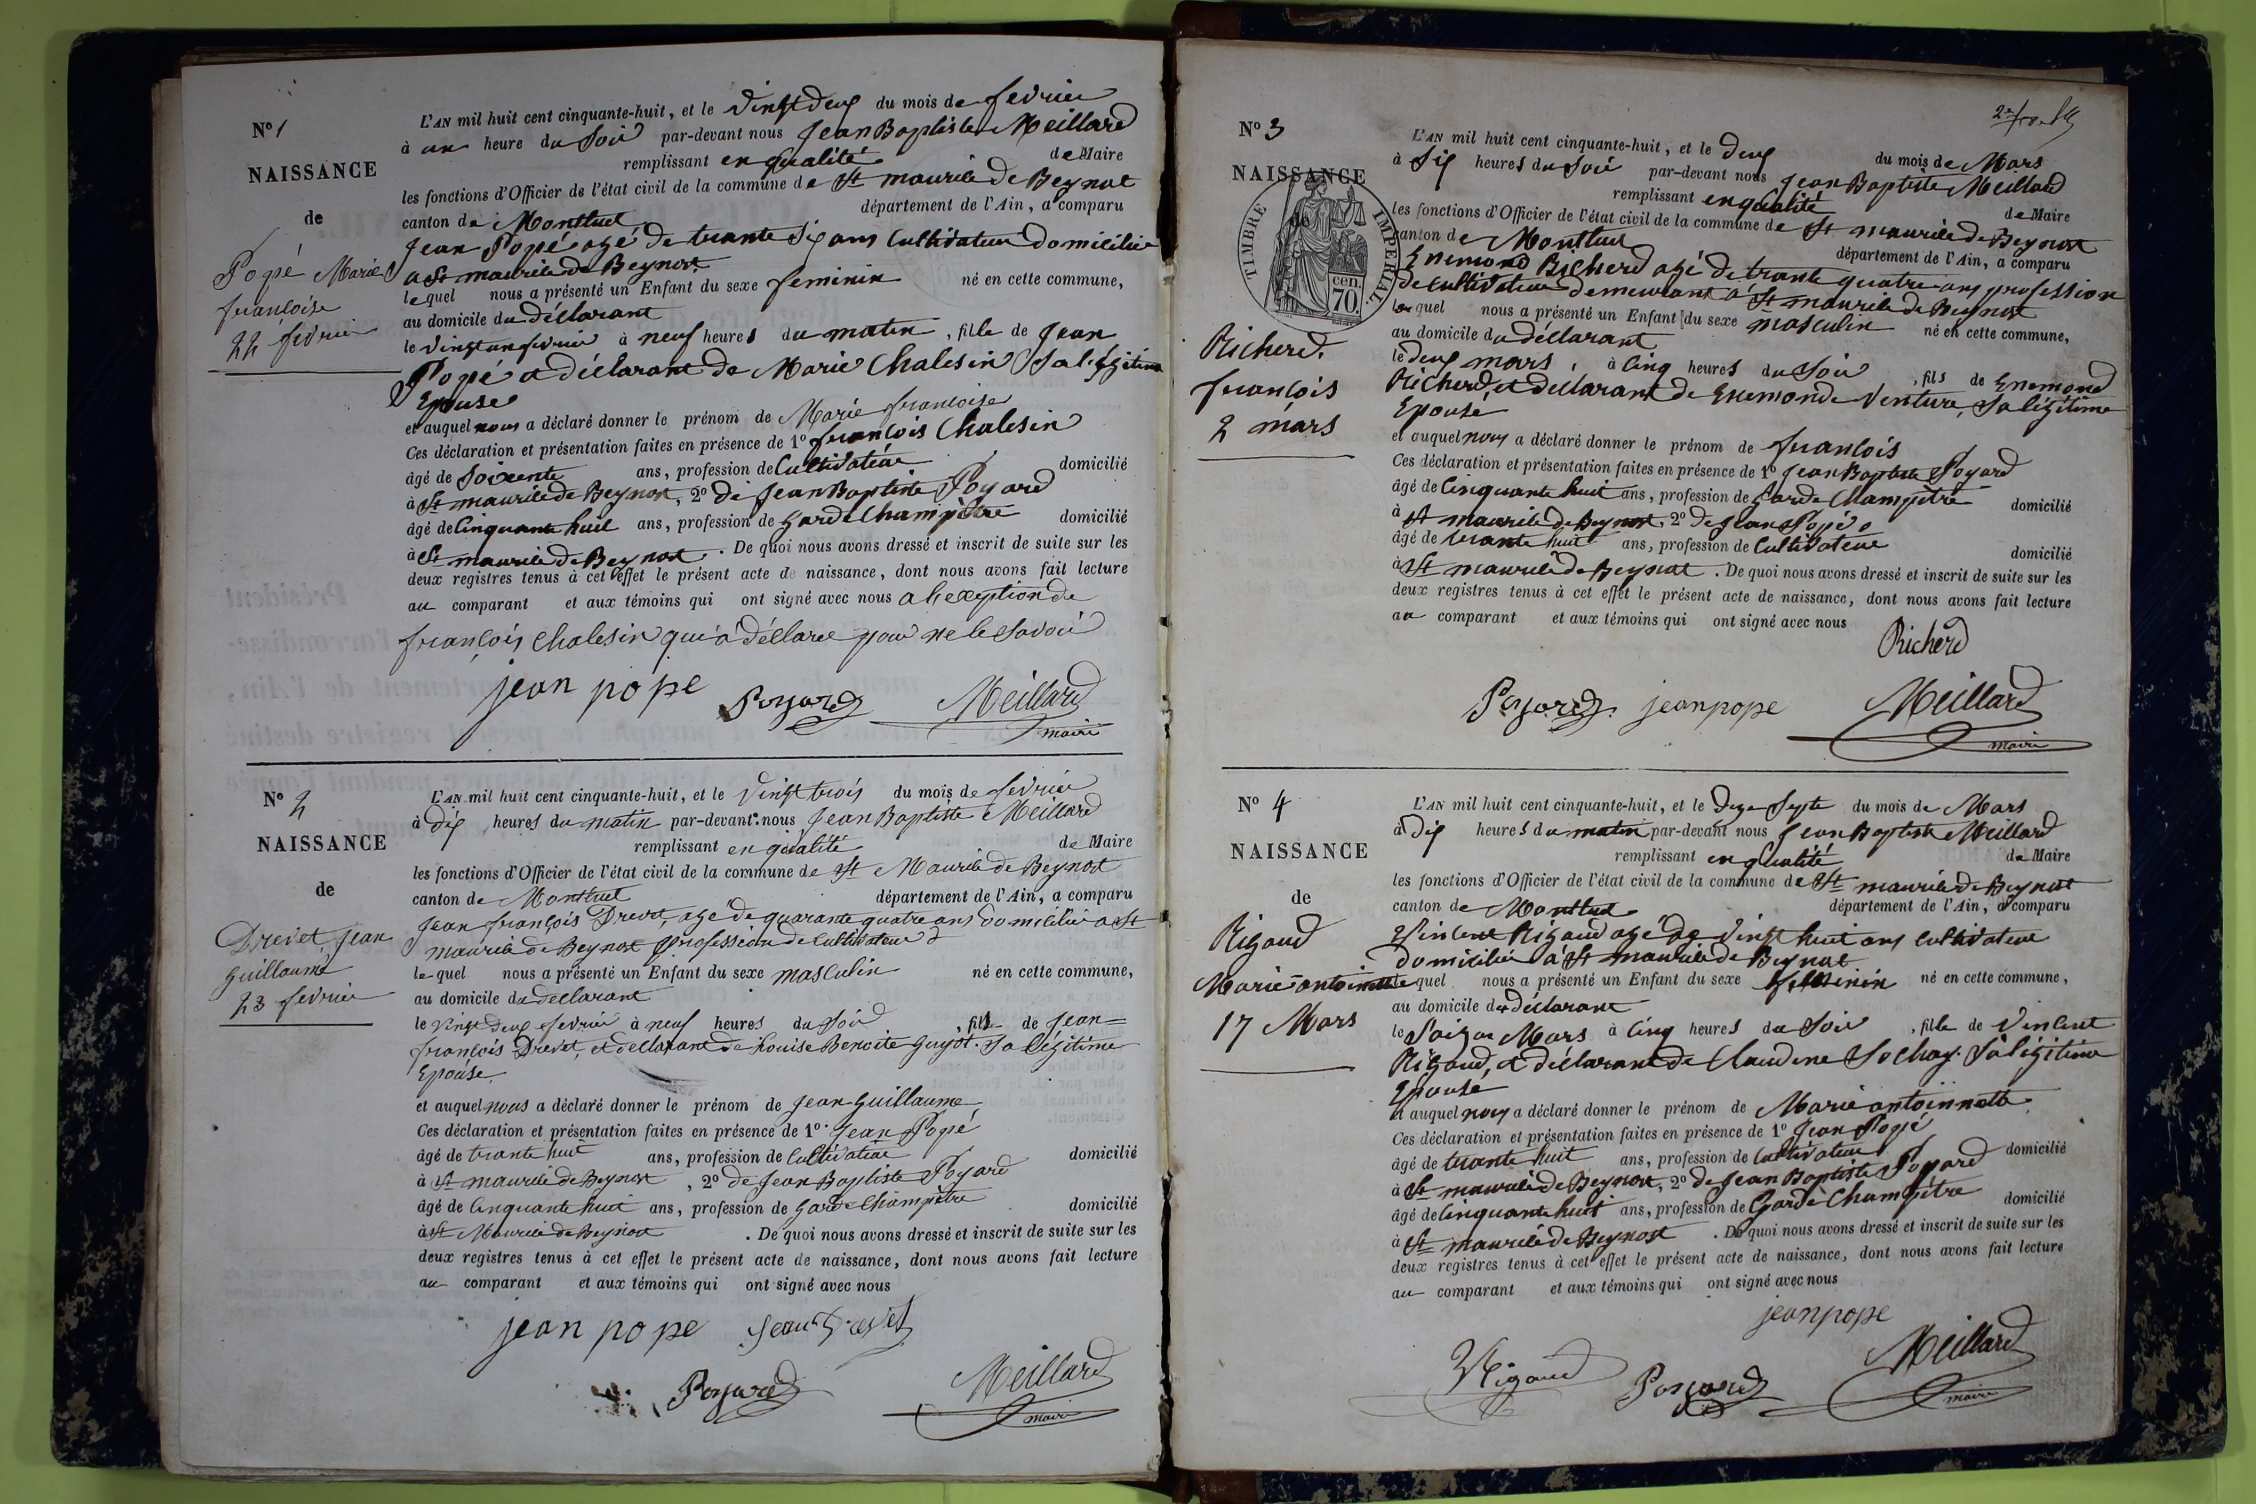 N° 1
NAISSANCE
de
Popé Marie
françoise
22 fevrier
L'AN mil huit cent cinquante-huit, et le vingt deux du mois de fevrier
à une heure du Soir par-devant nous Jean Baptiste Meillard
remplissant en qualité de Maire
les fonctions d'Officier de l'état civil de la commune de St maurice de Beynost
canton de Montluel département de l'Ain, a comparu
Jean Popé agé de trante six ans Cultivateur domicilié
a St maurice de Beynost
lequel nous a présenté un Enfant du sexe feminin né en cette commune,
au domicile du déclarant
le vingt un fevrier à neuf heures du matin, fille de Jean
Popé et déclarant de Marie Chalesin Sa légitime
Epouse
et auquel nous a déclaré donner le prénom de Marie françoise
Ces déclaration et présentation faites en présence de 1° françois Chalesin
âgé de Soixente ans, profession de Cultivateur domicilié
à St maurice de Beynost, 2° de Jean Baptiste Poyard
âgé de Cinquante huit ans, profession de garde Champêtre domicilié
à St maurice de Beynost. De quoi nous avons dressé et inscrit de suite sur les
deux registres tenus à cet effet le présent acte de naissance, dont nous avons fait lecture
au comparant et aux témoins qui ont signé avec nous a l'exeption de
françois Chalesin qui a déllaré pour ne le Savoir
jean pope Poyard Meillard
maire
N° 2
NAISSANCE
de
Drevet Jean
Guillaume
23 fevrier
L'AN mil huit cent cinquante-huit, et le vingt trois du mois de fevrier
à dix heures du matin par-devant nous Jean Baptiste Meillard
remplissant en qualité de Maire
les fonctions d'Officier de l'état civil de la commune de St Maurice de Beynost
canton de Montluel département de l'Ain, a comparu
Jean françois Drevet, agé de quarante quatre ans domicilié a St
maurice de Beynost profession de Cultivateur
lequel nous a présenté un Enfant du sexe masculin né en cette commune,
au domicile du déclarant
le vingt deux fevrier à neuf heures du Soir, fils de Jean=
françois Drevet, et déclarant de Louise Benoite guyot. Sa Légitime
Epouse.
et auquel nous a déclaré donner le prénom de Jean-Guillaume
Ces déclaration et présentation faites en présence de 1° Jean Popé
âgé de trante huit ans, profession de Cultivateur domicilié
à St maurice de Beynost, 2° de Jean Baptiste Poyard
âgé de Cinquante huit ans, profession de Garde Champêtre domicilié
à St Maurice de Beynost. De quoi nous avons dressé et inscrit de suite sur les
deux registres tenus à cet effet le présent acte de naissance, dont nous avons fait lecture
au comparant et aux témoins qui ont signé avec nous
jean pope Jean Drevet
Poyard Meillard
maire
N° 3
NAISSANCE
de
TIMBRE IMPERIAL
cen.
70.
Richerd.
françois
2 mars
L'AN mil huit cent cinquante-huit, et le deux du mois de Mars
à Six heures du Soir par-devant nous Jean Baptiste Meillard
remplissant en qualité de Maire
les fonctions d'Officier de l'état civil de la commune de St maurice de Beynost
canton de Montluel département de l'Ain, a comparu
Enemond Richerd agé de trante quatre ans profession
de Cultivateur demeurant a St maurice de Beynost
lequel nous a présenté un Enfant du sexe masculin né en cette commune,
au domicile du déclarant
le deux mars, à Cinq heures du Soir, fils de Enemond
Richerd, et déclarant de Enemonde Ventura, Sa légitime
Epouse
et auquel nous a déclaré donner le prénom de françois
Ces déclaration et présentation faites en présence de 1° Jean Baptiste Poyard
âgé de Cinquante huit ans, profession de garde Champêtre domicilié
à St maurice de Beynost, 2° de Jean Popé
âgé de trante huit ans, profession de Cultivateur domicilié
à St maurice de Beynost. De quoi nous avons dressé et inscrit de suite sur les
deux registres tenus à cet effet le présent acte de naissance, dont nous avons fait lecture
au comparant et aux témoins qui ont signé avec nous
Richerd
Poyard jean pope Meillard
maire
N° 4
NAISSANCE
de
Rigaud
Marie-antoinette
17 Mars
L'AN mil huit cent cinquante-huit, et le Dix Septe du mois de Mars
à Dix heures du matin par-devant nous Jean Baptiste Meillard
remplissant en qualité de Maire
les fonctions d'Officier de l'état civil de la commune de St maurice de Beynost
canton de Montluel département de l'Ain, a comparu
Vincent Rigaud agé de vingt huit ans Cultivateur
domicilié a St maurice de Beynost
lequel nous a présenté un Enfant du sexe féminin né en cette commune,
au domicile du déclarant
le Saize Mars à Cinq heures du Soir, fille de Vincent
Rigaud, et déclarant de Claudine Sochay. Sa légitime
Epouse
et auquel nous a déclaré donner le prénom de Marie antoinnette
Ces déclaration et présentation faites en présence de 1° Jean Popé
âgé de trante huit ans, profession de Cultivateur domicilié
à St maurice de Beynost, 2° de Jean Baptiste Poyard
âgé de Cinquante huit ans, profession de Garde Champêtre domicilié
à St maurice de Beynost. De quoi nous avons dressé et inscrit de suite sur les
deux registres tenus à cet effet le présent acte de naissance, dont nous avons fait lecture
au comparant et aux témoins qui ont signé avec nous
jean pope
Rigaud Poyard Meillard
maire